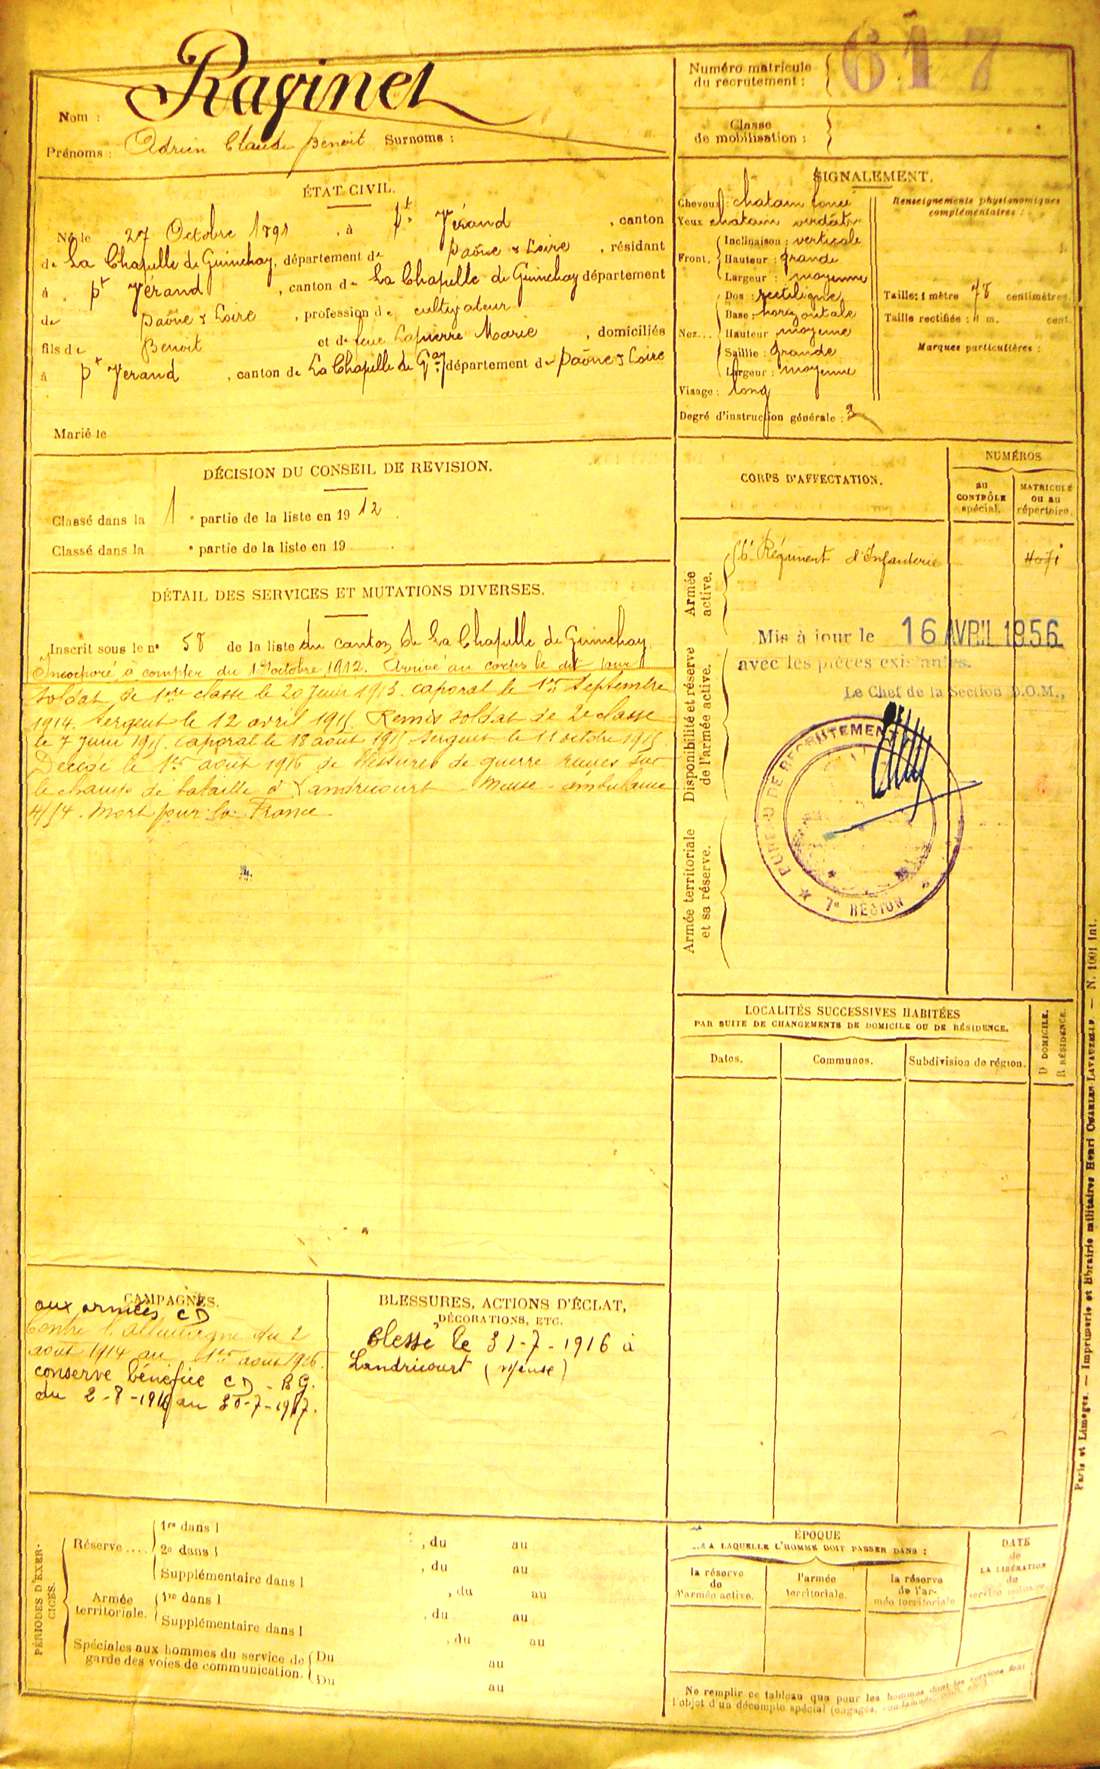 617
Numéro matricule
du recrutement :
Nom : Raginel
Prénoms : Adrien Claude Benoit Surnoms :
Classe
de mobilisation :
ÉTAT CIVIL.
Né le 27 Octobre 1891, à St Vérand, canton
de La Chapelle de Guinchay, département de Saône & Loire, résidant
à St Vérand, canton de La Chapelle de Guinchay département
de Saône & Loire, profession de cultivateur
fils de Benoit et de feue Lapierre Marie, domiciliés
à St Vérand, canton de La Chapelle de Gay département de Saône & Loire
Marié le
SIGNALEMENT.
Cheveux : chatain foncé
Yeux chatain verdâtre
Front. Inclinaison : verticale
Hauteur : grande
Largeur : moyenne
Nez... Dos : rectiligne
Base : horizontale
Hauteur moyenne
Saillie : grande
Largeur : moyenne
Visage : long
Degré d'instruction générale : 3
Renseignements physionomiques
complémentaires :
Taille : 1 mètre 78 centimètres.
Taille rectifiée : 1 m. cent.
Marques particulières :
DÉCISION DU CONSEIL DE REVISION.
Classé dans la 1 e partie de la liste en 1912.
Classé dans la e partie de la liste en 19 .
DÉTAIL DES SERVICES ET MUTATIONS DIVERSES.
Inscrit sous le n° 58 de la liste du canton de La Chapelle de Guinchay
Incorporé à compter du 1 octobre 1912. Arrivé au corps le dit jour
soldat de 1ère classe le 20 juin 1913. caporal le 1er septembre
1914. Sergent le 12 avril 1915 Remis soldat de 2e classe
le 7 juin 1915. caporal le 18 août 1915 sergent le 11 octobre 1915.
Décédé le 1er août 1916 de blessures de guerre reçues sur
le champ de bataille à Landricourt Meuse - ambulance
4/54. Mort pour la France
CORPS D'AFFECTATION.
NUMÉROS
au
CONTRÔLE
spécial.
MATRICULE
ou au
répertoire.
Armée
active.
Régiment d'Infanterie
4071
Mis à jour le 16 AVRIL 1956
avec les pièces existantes.
Le Chef de la Section D.O.M.,
Disponibilité et réserve
de l'armée active.
BUREAU DE RECRUTEMENT
7e REGION
Armée territoriale
et sa réserve.
LOCALITÉS SUCCESSIVES HABITÉES
PAR SUITE DE CHANGEMENTS DE DOMICILE OU DE RÉSIDENCE.
Dates.
Communes.
Subdivision de région.
D DOMICILE.
R RÉSIDENCE.
CAMPAGNES.
aux armées CD
Contre l'Allemagne du 2
août 1914 au 1er août 1916.
conserve bénéfice CD - BG.
du 2-8-1916 au 31-7-1917.
BLESSURES, ACTIONS D'ÉCLAT,
DÉCORATIONS, ETC.
Blessé le 31-7-1916 à
Landricourt (Meuse)
PÉRIODES D'EXER-
CICES.
Réserve....
1re dans l , du au
2e dans l , du au
Supplémentaire dans l , du au
Armée
territoriale.
1re dans l , du au
Supplémentaire dans l , du au
Spéciales aux hommes du service de
garde des voies de communication.
Du au
Du au
ÉPOQUE
À LAQUELLE L'HOMME DOIT PASSER DANS :
la réserve
de
l'armée active.
l'armée
territoriale.
la réserve
de l'ar-
mée territoriale
DATE
de
LA LIBÉRATION
du
service militaire.
Ne remplir ce tableau que pour les hommes dont les services font
l'objet d'un décompte spécial
Paris et Limoges. — Imprimerie et librairie militaires Henri CHARLES-LAVAUZELLE. — N. 1001 Int.